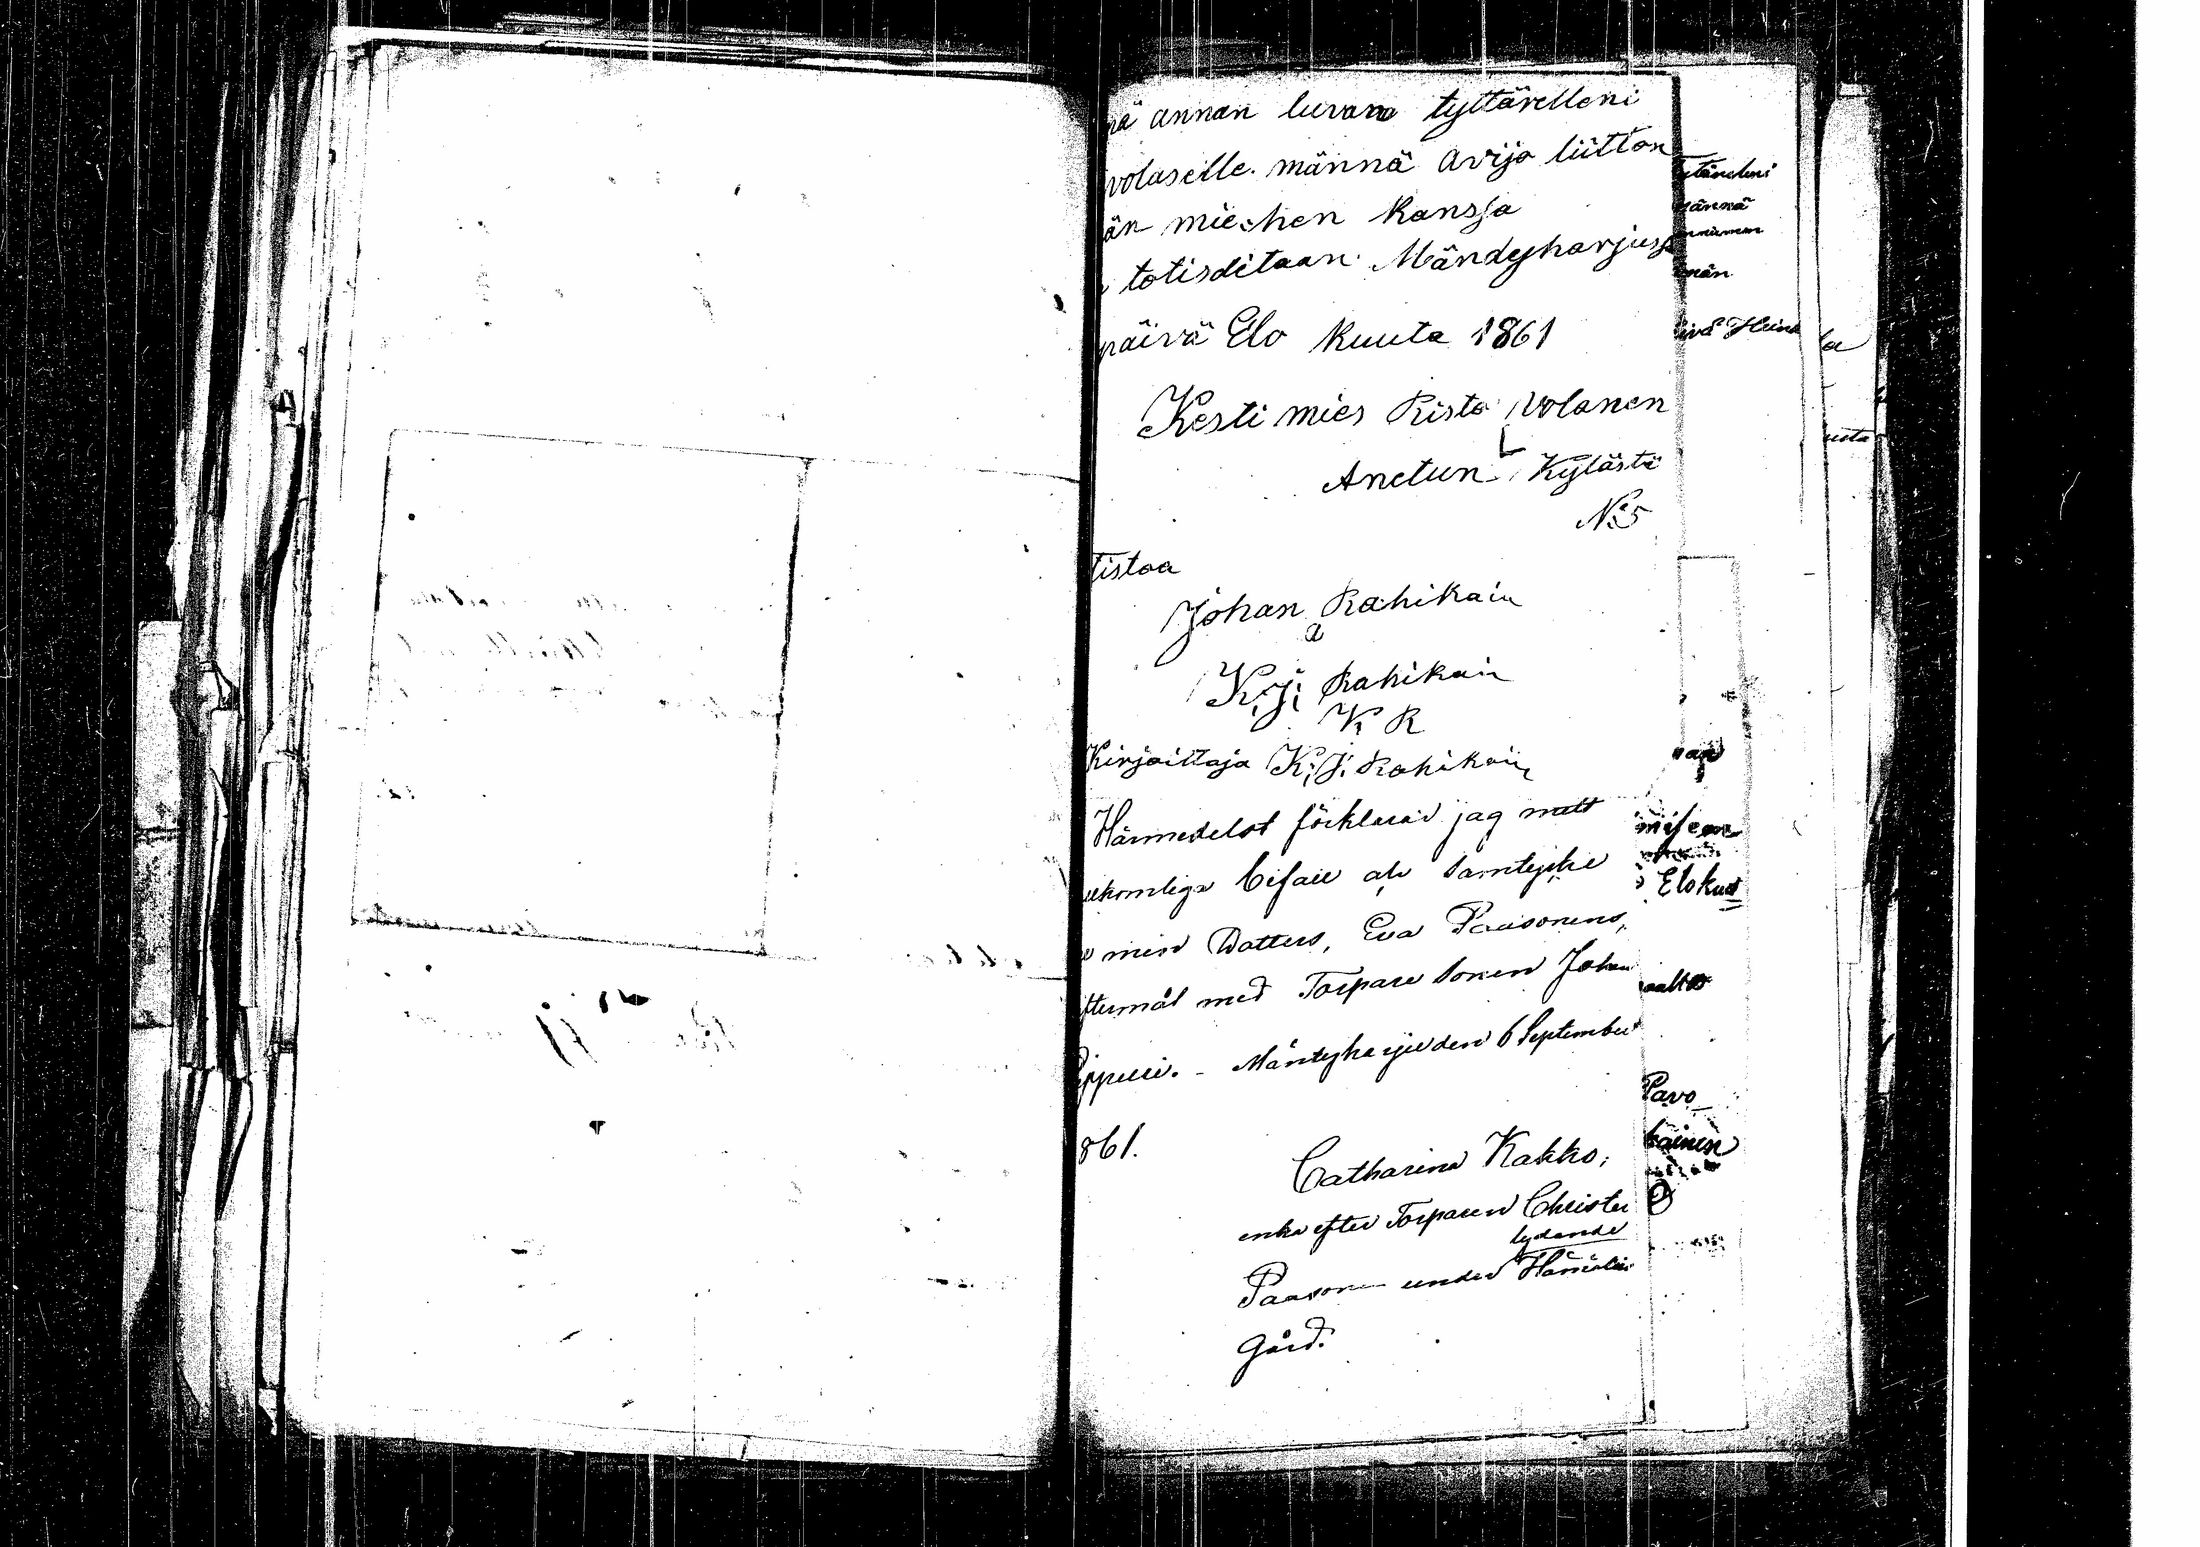 nä annan luvan tyttärelleni
volaselle. männä avijo liitton
än miehen kansja
totisditaan. Mändyharjussa
päivä Elo kuuta 1861
Kesti mies Risto Wolanen
Anetun Kylästä
No 5
tistaa
Johan Rahikain
a
K. J. Rahikain
K R
Kirjoittaja K. J. Rahikain
Härmedelst förklarar jag mitt
ukomliga bifall
min Dotters, Eva Paasonens,
ftermål med Torpare Sonen Johan
ippuri. - Mäntyharju den 6 September
861.
Catharina Kakko,
enka efter Torparen Christer
lydande
Paason under
Gård.
männä
män
ivä Hein
la
usta
Elokuu
Pavo
kainen